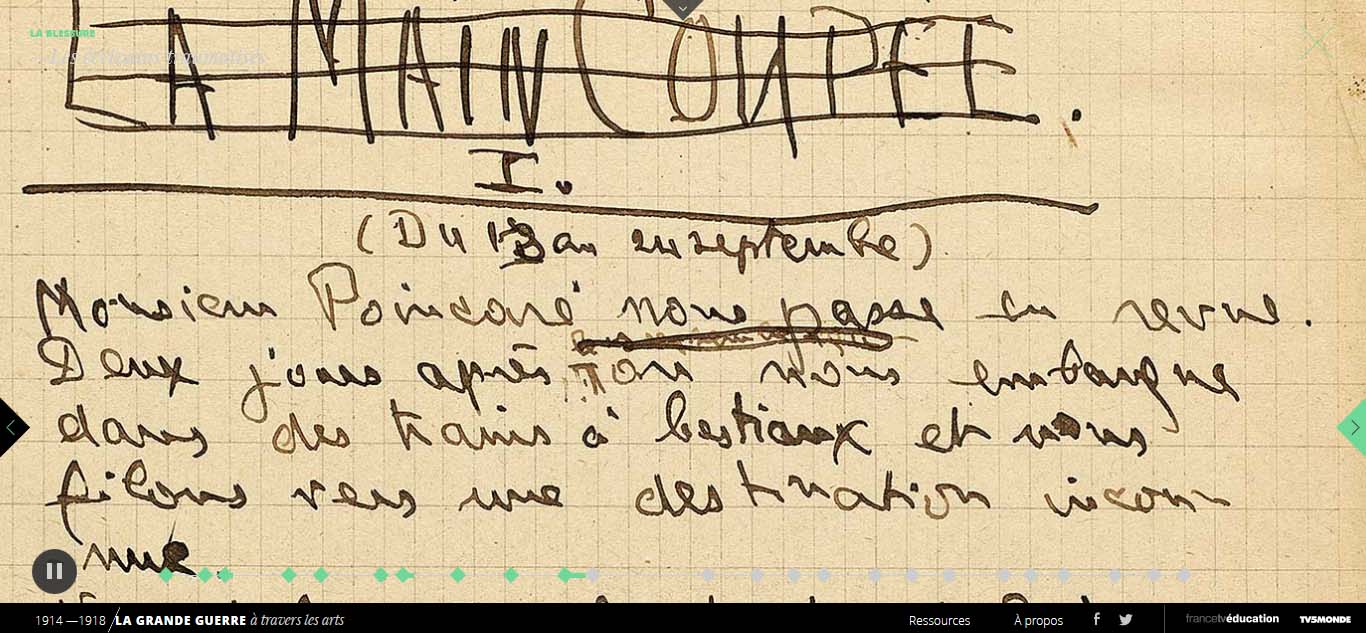 LA BLESSURE
LA MAIN COUPÉE.
I.
(Du 13 au 24 septembre)
Monsieur Poincaré nous passe en revue.
Deux jours après on nous embarque
dans des trains à bestiaux et nous
filons vers une destination incon-
nue.
1914 — 1918 / LA GRANDE GUERRE à travers les arts
Ressources
À propos
francetvéducation
TV5MONDE